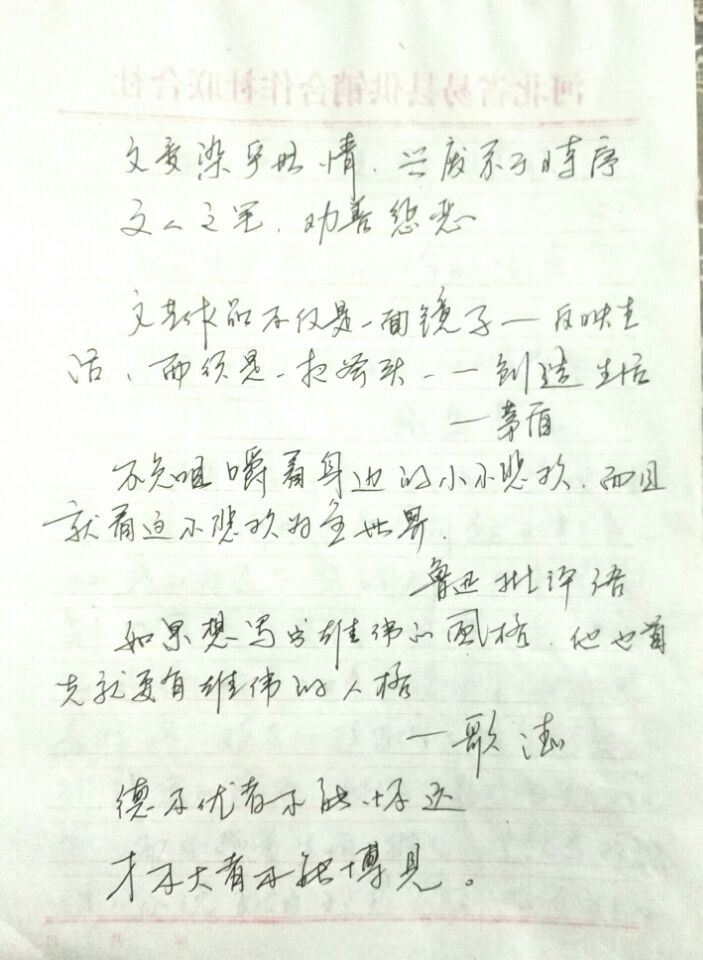 河北省易县供销合作社联合社
文变染乎世情，兴废系于时序
文人之笔，劝善惩恶
文艺作品不仅是一面镜子—反映生
活，而须是一把斧头——创造生活
—茅盾
不免咀嚼着身边的小小悲欢，而且
就看这小悲欢为全世界。
鲁迅批评语
如果想写出雄伟的風格，他也首
先就要有雄伟的人格
—歌德
德不优者不能怀远
才不大者不能博見。